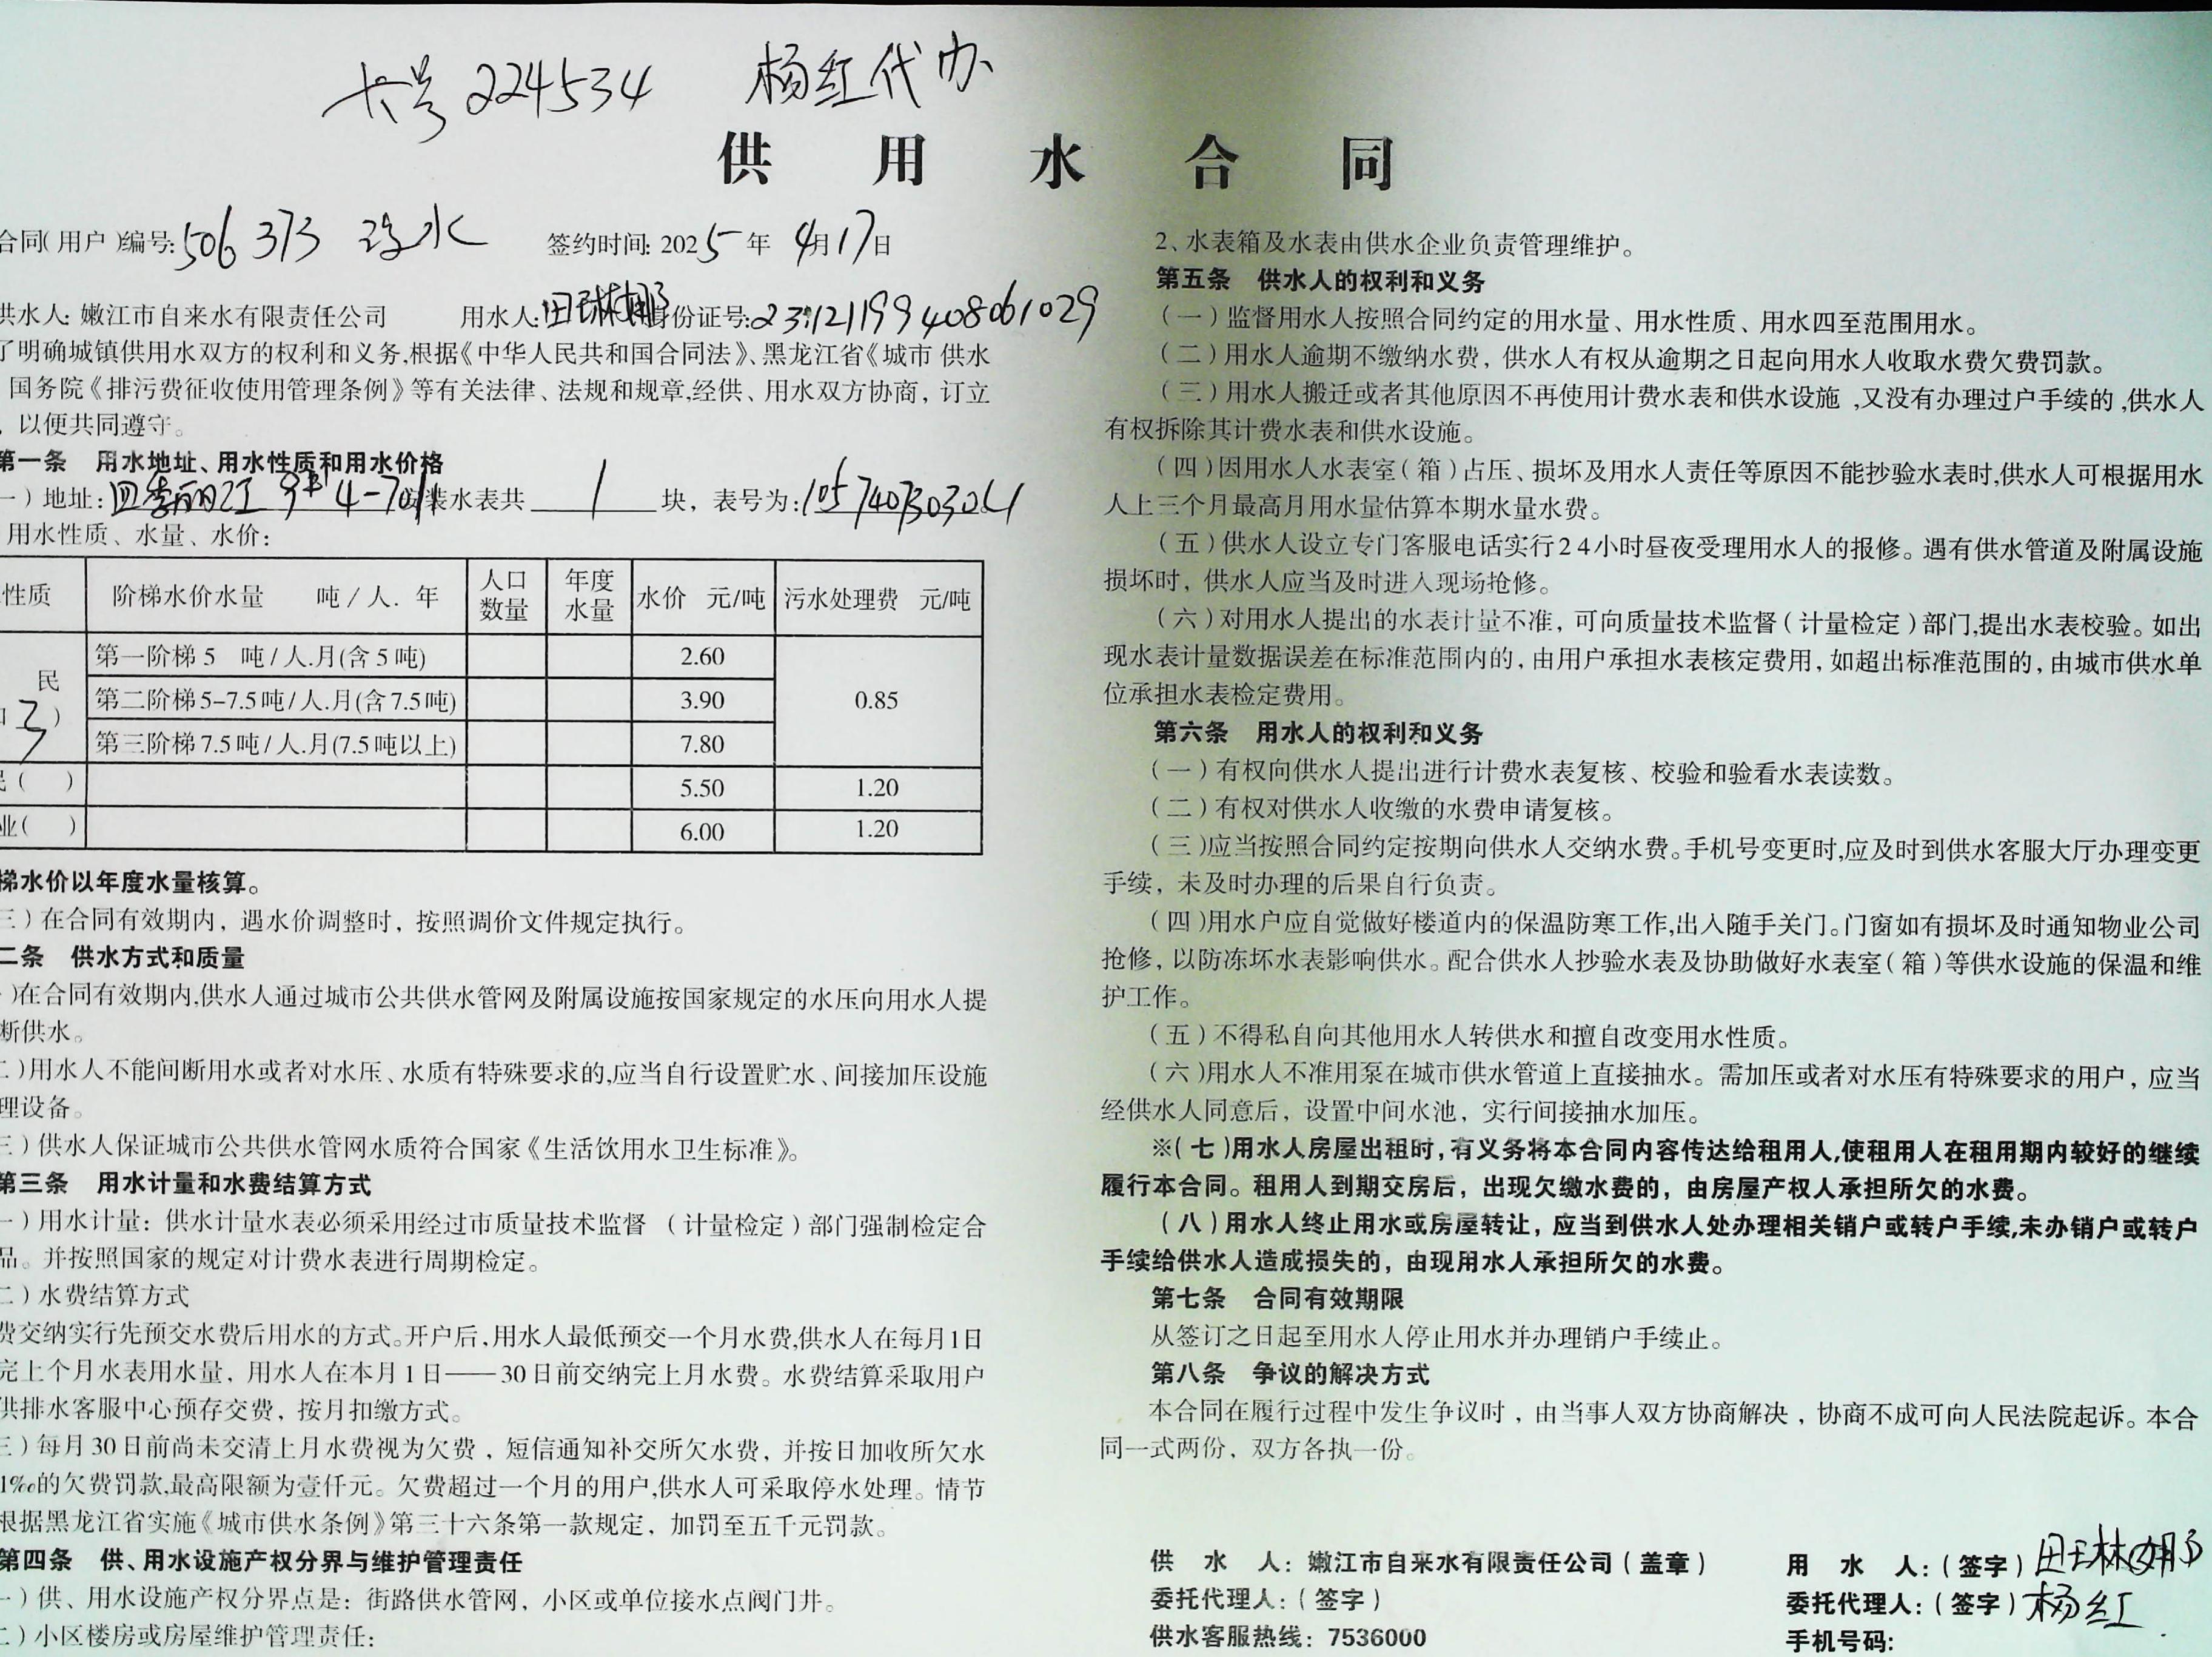 卡号 224534 杨红代办
供用水合同
合同(用户)编号:506373 冷水 签约时间: 2025年 4月17日
供水人: 嫩江市自来水有限责任公司 用水人:田琳娜 身份证号:231121199408061029
了明确城镇供用水双方的权利和义务,根据《中华人民共和国合同法》、黑龙江省《城市 供水
国务院《排污费征收使用管理条例》等有关法律、法规和规章,经供、用水双方协商，订立
，以便共同遵守。
第一条 用水地址、用水性质和用水价格
一）地址:四季丽江 9# 4-701 安装水表共 1 块，表号为:
用水性质、水量、水价:
性质 阶梯水价水量 吨/人. 年 人口数量 年度水量 水价 元/吨 污水处理费 元/吨
民
口 3 )
第一阶梯 5 吨/人.月(含 5 吨) 2.60
第二阶梯 5-7.5 吨/人.月(含 7.5 吨) 3.90 0.85
第三阶梯 7.5 吨/人.月(7.5 吨以上) 7.80
民( ) 5.50 1.20
业( ) 6.00 1.20
梯水价以年度水量核算。
三）在合同有效期内，遇水价调整时，按照调价文件规定执行。
二条 供水方式和质量
）在合同有效期内,供水人通过城市公共供水管网及附属设施按国家规定的水压向用水人提
断供水。
二）用水人不能间断用水或者对水压、水质有特殊要求的,应当自行设置贮水、间接加压设施
理设备。
三）供水人保证城市公共供水管网水质符合国家《生活饮用水卫生标准》。
第三条 用水计量和水费结算方式
一）用水计量：供水计量水表必须采用经过市质量技术监督（计量检定）部门强制检定合
品。并按照国家的规定对计费水表进行周期检定。
二）水费结算方式
费交纳实行先预交水费后用水的方式。开户后,用水人最低预交一个月水费,供水人在每月1日
完上个月水表用水量，用水人在本月 1 日——30 日前交纳完上月水费。水费结算采取用户
供排水客服中心预存交费，按月扣缴方式。
三）每月 30 日前尚未交清上月水费视为欠费，短信通知补交所欠水费，并按日加收所欠水
1‰的欠费罚款,最高限额为壹仟元。欠费超过一个月的用户,供水人可采取停水处理。情节
根据黑龙江省实施《城市供水条例》第三十六条第一款规定，加罚至五千元罚款。
第四条 供、用水设施产权分界与维护管理责任
一）供、用水设施产权分界点是：街路供水管网，小区或单位接水点阀门井。
二）小区楼房或房屋维护管理责任：
2、水表箱及水表由供水企业负责管理维护。
第五条 供水人的权利和义务
（一）监督用水人按照合同约定的用水量、用水性质、用水四至范围用水。
（二）用水人逾期不缴纳水费，供水人有权从逾期之日起向用水人收取水费欠费罚款。
（三）用水人搬迁或者其他原因不再使用计费水表和供水设施,又没有办理过户手续的,供水人
有权拆除其计费水表和供水设施。
（四）因用水人水表室（箱）占压、损坏及用水人责任等原因不能抄验水表时,供水人可根据用水
人上三个月最高月用水量估算本期水量水费。
（五）供水人设立专门客服电话实行24小时昼夜受理用水人的报修。遇有供水管道及附属设施
损坏时，供水人应当及时进入现场抢修。
（六）对用水人提出的水表计量不准，可向质量技术监督（计量检定）部门,提出水表校验。如出
现水表计量数据误差在标准范围内的，由用户承担水表核定费用，如超出标准范围的，由城市供水单
位承担水表检定费用。
第六条 用水人的权利和义务
（一）有权向供水人提出进行计费水表复核、校验和验看水表读数。
（二）有权对供水人收缴的水费申请复核。
（三）应当按照合同约定按期向供水人交纳水费。手机号变更时,应及时到供水客服大厅办理变更
手续，未及时办理的后果自行负责。
（四）用水户应自觉做好楼道内的保温防寒工作,出入随手关门。门窗如有损坏及时通知物业公司
抢修，以防冻坏水表影响供水。配合供水人抄验水表及协助做好水表室（箱）等供水设施的保温和维
护工作。
（五）不得私自向其他用水人转供水和擅自改变用水性质。
（六）用水人不准用泵在城市供水管道上直接抽水。需加压或者对水压有特殊要求的用户，应当
经供水人同意后，设置中间水池，实行间接抽水加压。
※（七）用水人房屋出租时,有义务将本合同内容传达给租用人,使租用人在租用期内较好的继续
履行本合同。租用人到期交房后，出现欠缴水费的，由房屋产权人承担所欠的水费。
（八）用水人终止用水或房屋转让，应当到供水人处办理相关销户或转户手续,未办销户或转户
手续给供水人造成损失的，由现用水人承担所欠的水费。
第七条 合同有效期限
从签订之日起至用水人停止用水并办理销户手续止。
第八条 争议的解决方式
本合同在履行过程中发生争议时，由当事人双方协商解决，协商不成可向人民法院起诉。本合
同一式两份，双方各执一份。
供 水 人：嫩江市自来水有限责任公司（盖章） 用 水 人：（签字）田琳娜
委托代理人：（签字） 委托代理人：（签字）杨红
供水客服热线：7536000 手机号码: